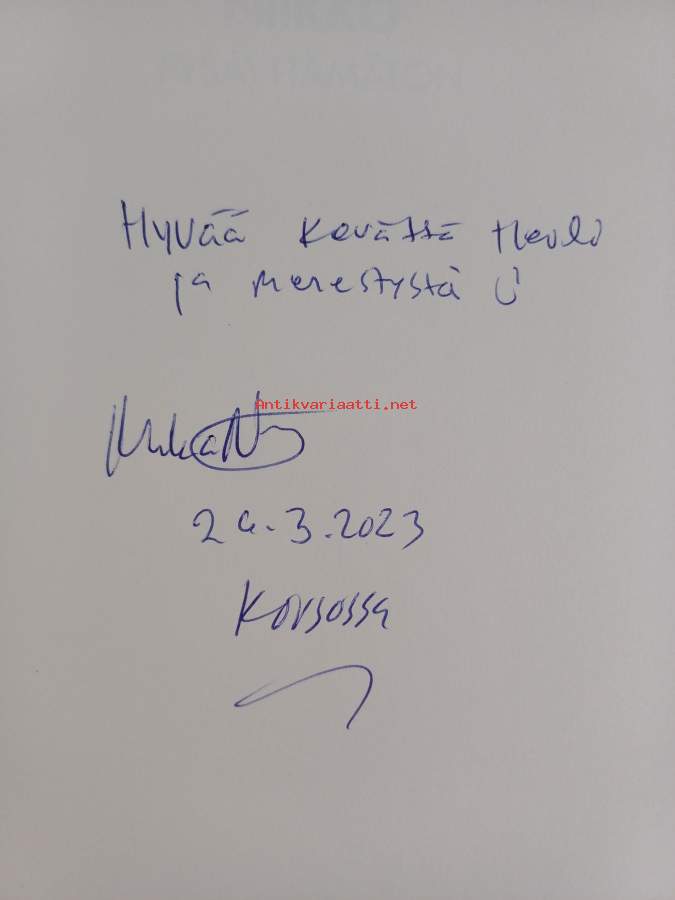 Hyvää Kevättä
ja menestystä
Antikvariaatti.net
24.3.2023
Korsossa